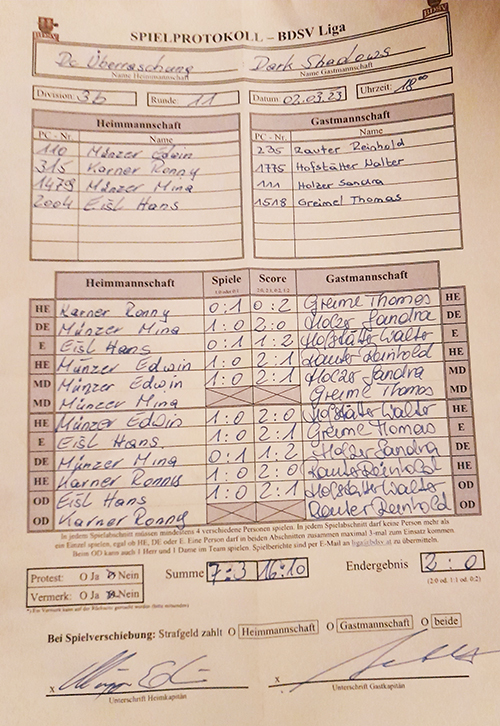 SPIELPROTOKOLL – BDSV Liga
Dc Überraschung Dark Shadows
Name Heimmannschaft Name Gastmannschaft
Division: 3b Runde: 11 Datum: 02.03.23 Uhrzeit: 18 00
Heimmannschaft Gastmannschaft
PC - Nr. Name PC - Nr. Name
110 Münzer Edwin 235 Rauter Reinhold
315 Karner Ronny 1775 Hofstätter Walter
1479 Münzer Mina 111 Holzer Sandra
2004 Eisl Hans 1518 Greimel Thomas
Heimmannschaft Spiele Score Gastmannschaft
1:0 oder 0:1 2:0, 2:1, 0:2, 1:2
HE Karner Ronny 0:1 0:2 Greime Thomas HE
DE Münzer Mina 1:0 2:0 Holzer Sandra DE
E Eisl Hans 0:1 1:2 Hofstätter Walter E
HE Münzer Edwin 1:0 2:1 Rauter Reinhold HE
MD Münzer Edwin 1:0 2:1 Holzer Sandra MD
MD Münzer Mina Greime Thomas MD
HE Münzer Edwin 1:0 2:0 Hofstätter Walter HE
E Eisl Hans 1:0 2:1 Greime Thomas E
DE Münzer Mina 0:1 1:2 Holzer Sandra DE
HE Karner Ronny 1:0 2:0 Rauter Reinhold HE
OD Eisl Hans 1:0 2:1 Hofstätter Walter OD
OD Karner Ronny Rauter Reinhold OD
In jedem Spielabschnitt müssen mindestens 4 verschiedene Personen spielen. In jedem Spielabschnitt darf keine Person mehr als
ein Einzel spielen, egal ob HE, DE oder E. Eine Person darf in beiden Abschnitten zusammen maximal 3-mal zum Einsatz kommen.
Beim OD kann auch 1 Herr und 1 Dame im Team spielen. Spielberichte sind per E-Mail an liga@bdsv.at zu übermitteln.
Protest: O Ja O Nein Summe 7:3 16:10 Endergebnis 2:0
Vermerk: O Ja O Nein (2:0 od. 1:1 od. 0:2)
Bei Spielverschiebung: Strafgeld zahlt O Heimmannschaft O Gastmannschaft O beide
x x
Unterschrift Heimkapitän Unterschrift Gastkapitän